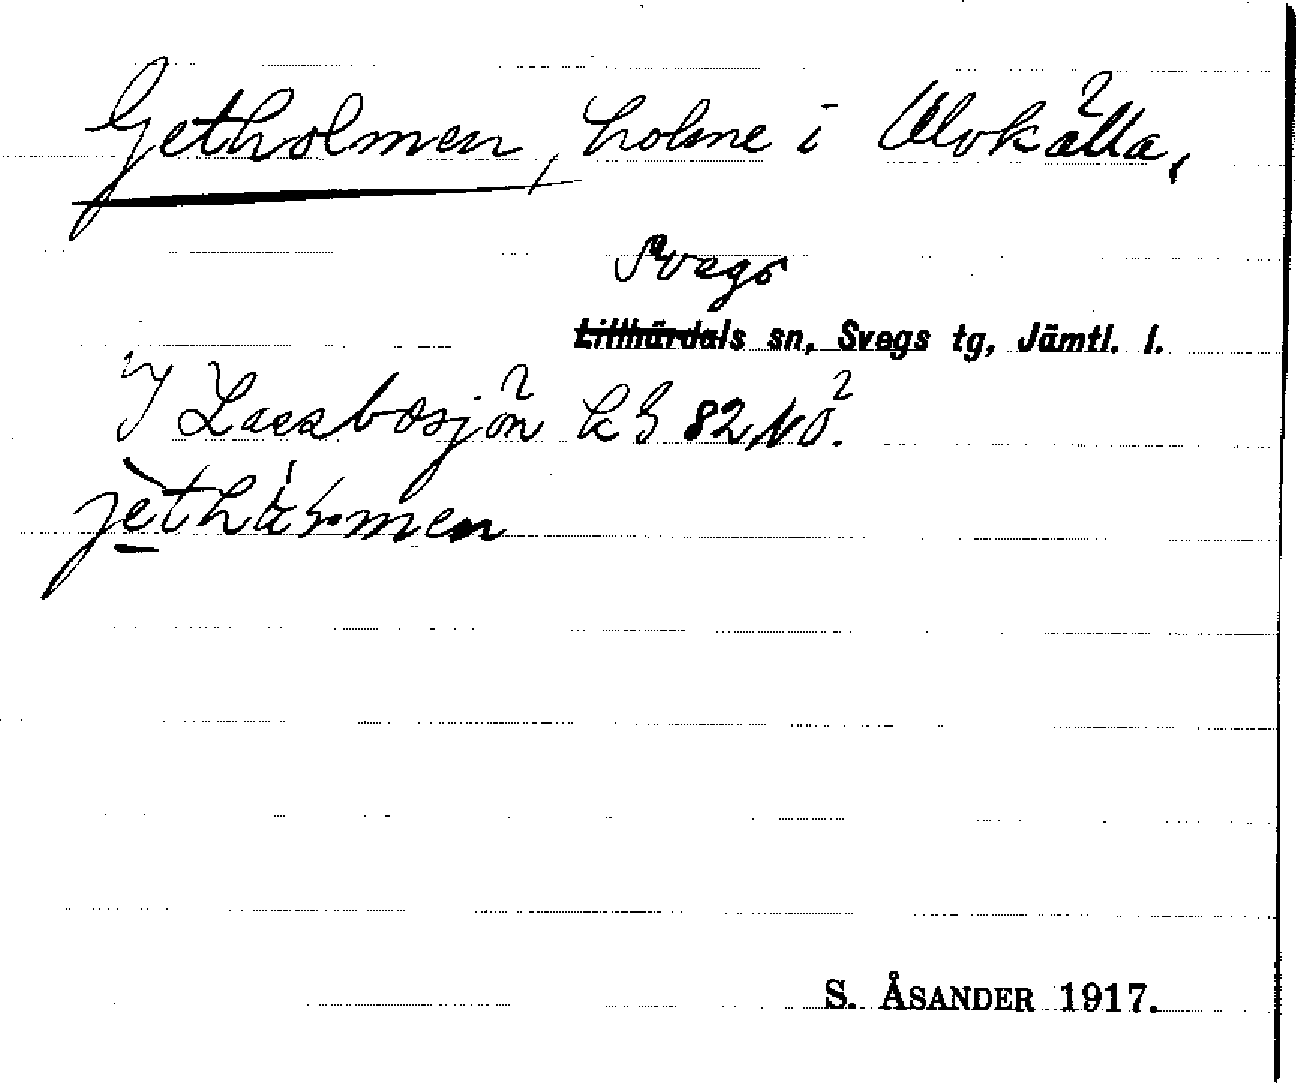 Getholmen, holme i Ulvkälla,
Svegs
Lillhärdals sn, Svegs tg, Jämtl. l.
I Lassbosjön KB 82 NÖ.
S. ÅSANDER 1917.